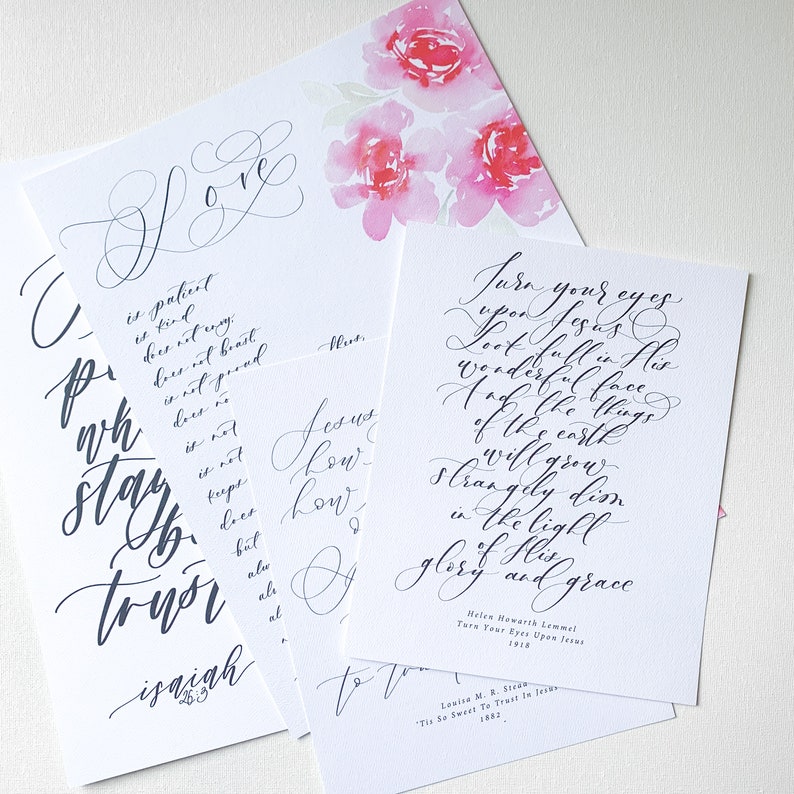 Love
is patient
is kind
does not envy,
does not boast
is not proud
does no
is not
is not
keeps
does
but
alw
alw
al
al
wh
stay
be
trust
isaiah
26:3
Jesus
how
how
to tru
Louisa M. R. Stead
'Tis So Sweet To Trust In Jesus
1882
Turn your eyes
upon Jesus
Look full in His
wonderful face
And the things
of the earth
will grow
strangely dim
in the light
of His
glory and grace
Helen Howarth Lemmel
Turn Your Eyes Upon Jesus
1918